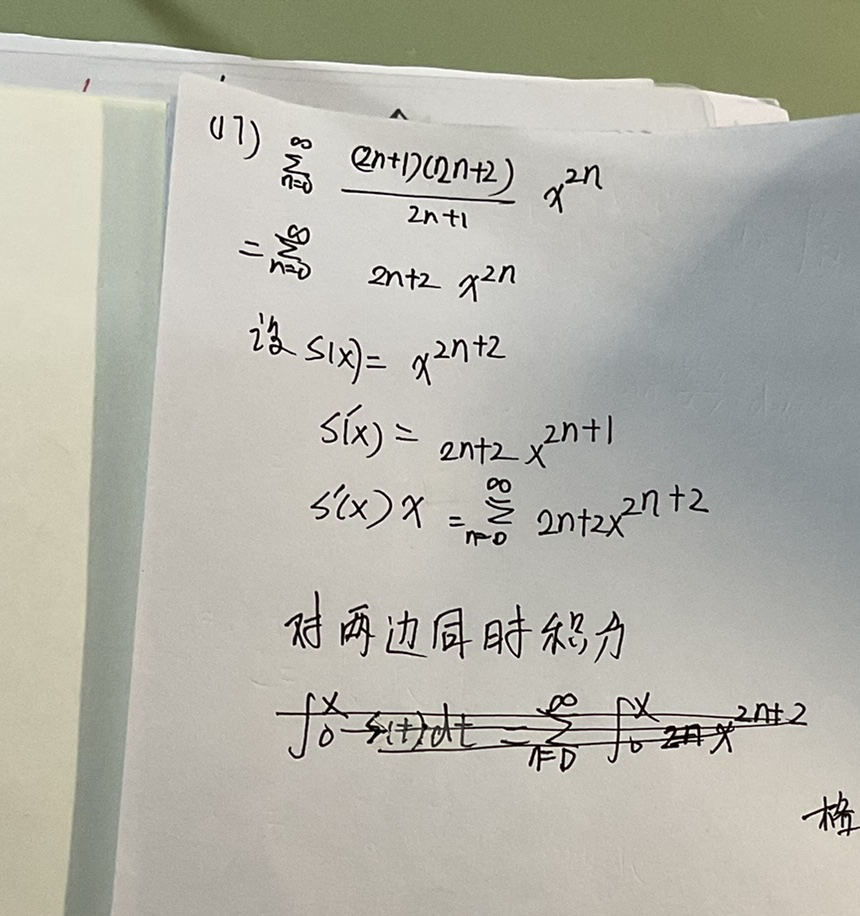 (17) ∞ Σ n=0 (2n+1)(2n+2) / 2n+1 x^2n
= ∞ Σ n=0 2n+2 x^2n
设 S(x)= x^2n+2
S'(x) = 2n+2 x^2n+1
S'(x) x = ∞ Σ n=0 2n+2x^2n+2
对两边同时积分
∫ x 0 S(t)dt = ∞ Σ n=0 ∫ x 0 2n x^2n+2